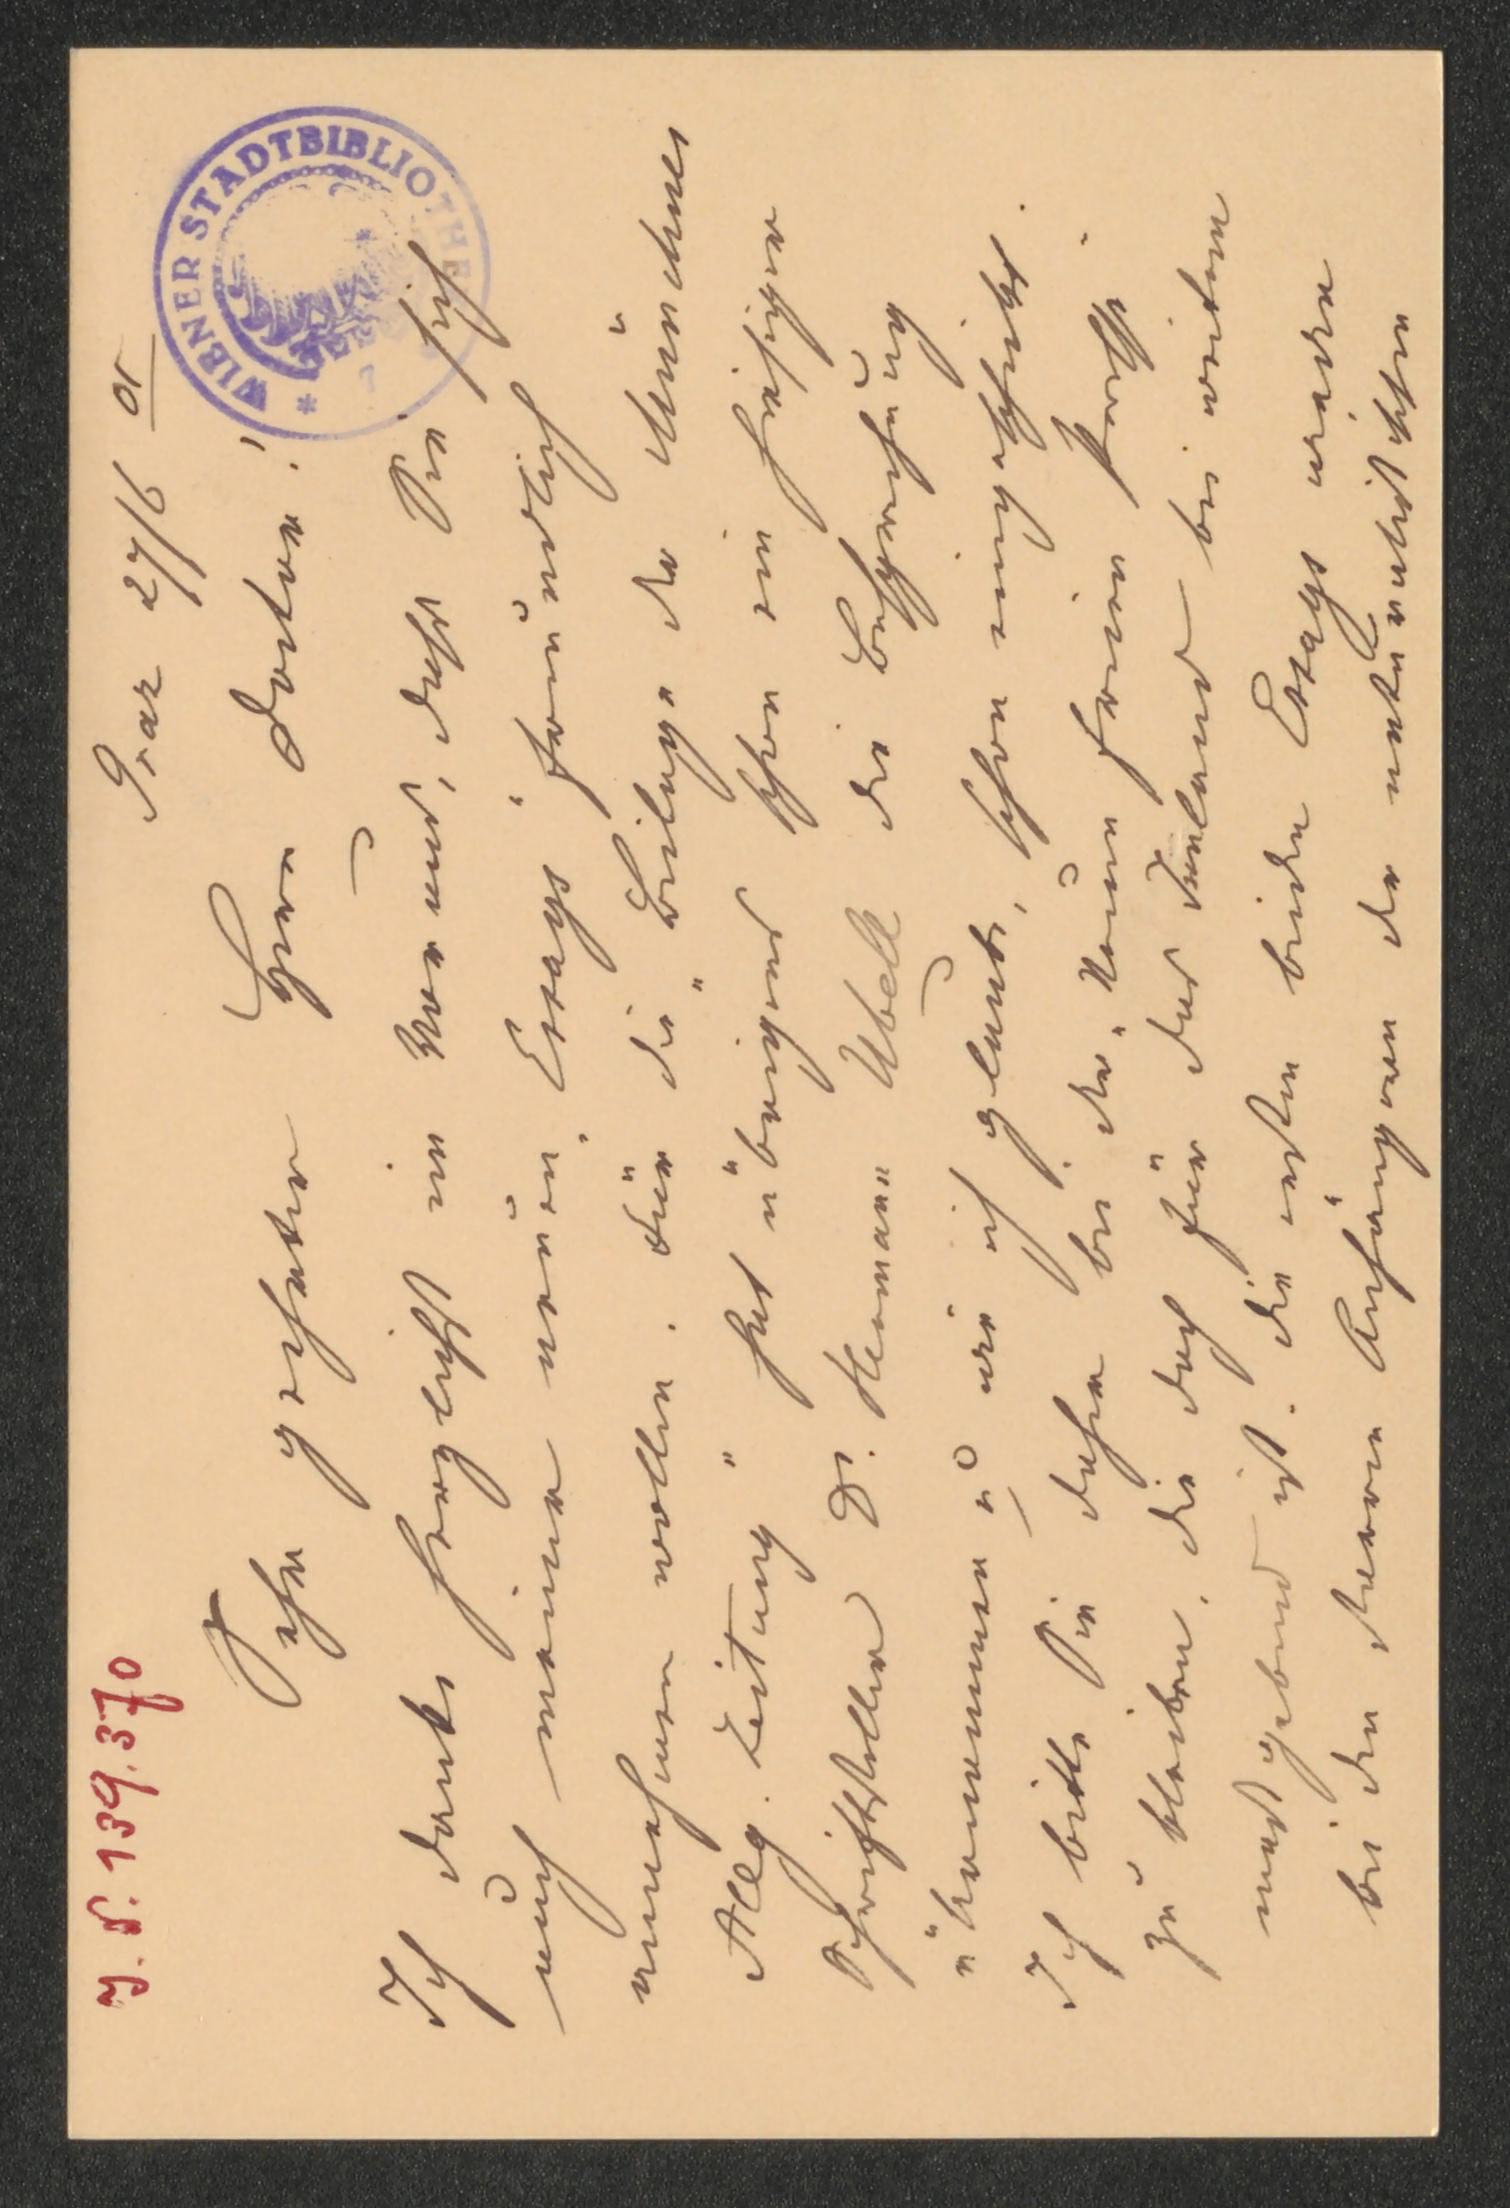 J. N. 139.370
Graz 27/6 01
WIENER STADTBIBLIOTHEK
Sehr geehrter Herr Doctor!
Ich danke herzlichst im Voraus, dass Sie sich
auch meiner neuen Essays freundlich
annehmen wollen. Für die "Beilage der Münchner
Allg. Zeitung" hat übrigens schon ein hiesiger
Schriftsteller Dr. Hermann Ubell die Besprechung
übernommen u wie ich glaube, schon eingeschickt.
Ich bitte Sie daher bei der "Neuen freien Presse"
zu bleiben, die doch für das Inland bei weitem
massgebend ist. Die ersten beiden Essays würden
bei den Anhängern der naturalistischen